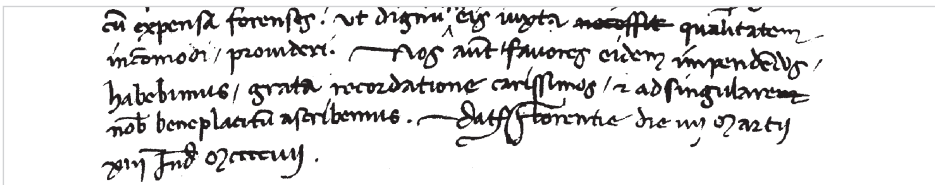 cū expensā forenses. ut dignū eis iuxta necessit qualitatem
incōmodi / provideri. Nos aūt favores eidem impendēdos /
habebimus / grata recordatione carissimos / et ad singularem
nob beneplacitū ascribemus. Dat Florentie die iiij Martii
xiiij Ind Mccccvij.